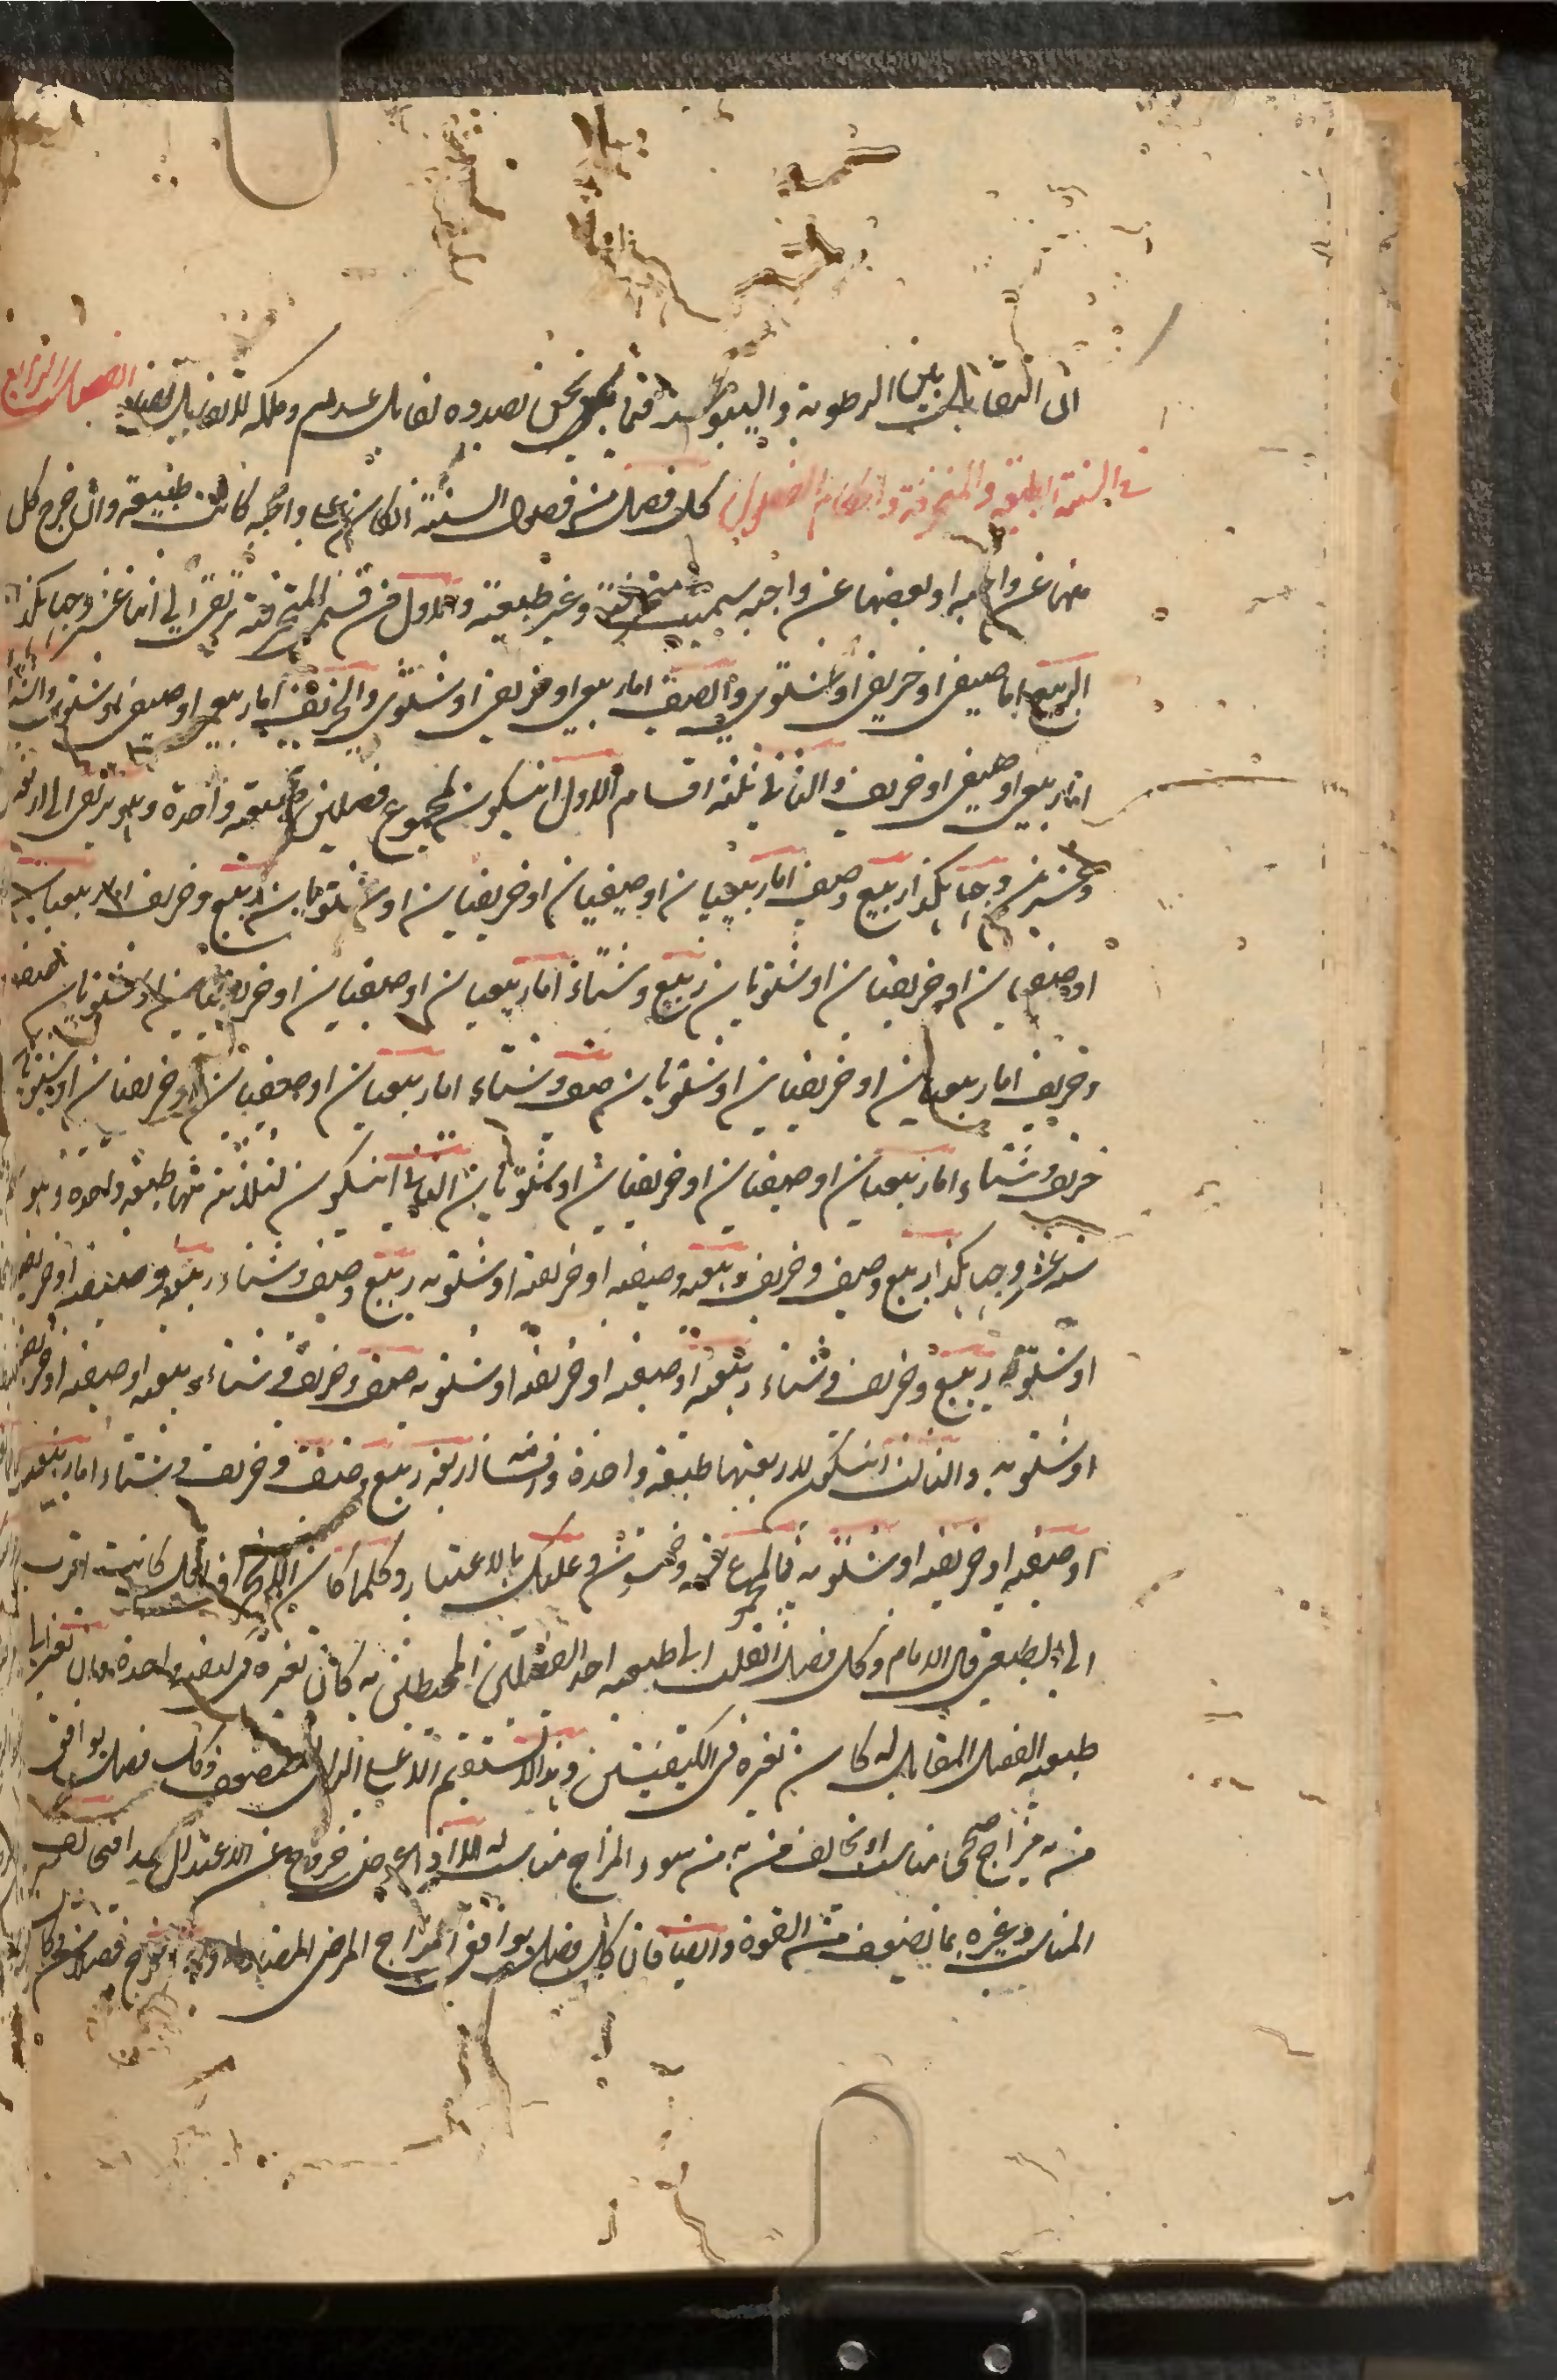 ان التقابل بين الرطوبة واليبوسة فيما نحن بصدده تقابل عدم وملكة لا تقابل تضاد الفصل الرابع
في السنة الطبيعية والمنحرفة واحكام الفصول كل فصل من فصول السنة اذا كان على واجبه كانت طبيعية وان خرج كل
منها عن واجبه او بعضها عن واجبه سميت منحرفة وغير طبيعية والاول من قسم المنحرفة يرتقي الى اثنا عشر وجها هكذا
الربيع اما صيفي او خريفي او شتوي والصيف اما ربيعي او خريفي او شتوي والخريف اما ربيعي او صيفي او شتوي والشتا
اما ربيعي او صيفي او خريفي والثاني ثلثة اقسام الاول ان يكون لمجموع فصلين طبيعة واحدة وهو يرتقي الى اربعة
وعشرين وجها هكذا ربيع وصيف اما ربيعيان او صيفيان او خريفيان او شتويان ربيع وخريف اما ربيعيان
او صيفيان او خريفيان او شتويان ربيع وشتاء اما ربيعيان او صيفيان او خريفيان او شتويان صيف
وخريف اما ربيعيان او خريفيان او شتويان صيف وشتاء اما ربيعيان او صيفيان او خريفيان او شتويان
خريف وشتاء اما ربيعيان او صيفيان او خريفيان او شتويان الثاني ان يكون لثلاثة منها طبيعة واحدة وهو
ستة عشر وجها هكذا ربيع وصيف وخريف ربيعية وصيفية او خريفية او شتوية ربيع وصيف وشتاء ربيعية وصيفية او خريفية
او شتوية ربيع وخريف وشتاء ربيعية او صيفية او خريفية او شتوية صيف وخريف وشتاء ربيعية او صيفية او خريفية
او شتوية والثالث ان يكون لاربعتها طبيعة واحدة واقسامه اربعة ربيع وصيف وخريف وشتاء اما ربيعية
او صيفية او خريفية او شتوية فالمجموع وخمسون وعليك بالاعتبار وكلما كان الانحراف اقل كانت اقرب
الى الطبيعي قال الامام وكل فصل انقلب الى طبيعة احد الفصلين المحيطين به كان تغيره في كيفية واحدة وان تغير الى
طبيعة الفصل المقابل له كان تغيره في الكيفيتين وهذا لا يستقيم الا على الراي الضعيف وكل فصل يوافق
من به مزاج صحي مناسب او يخالف من به من سوء المزاج مناسب له الا اذا عرض خروج عن الاعتدال جدا فيخالف
المناسب وغيره بما يضعف من القوة وايضا فان كل فصل يوافق المزاج المرضي المضاد له